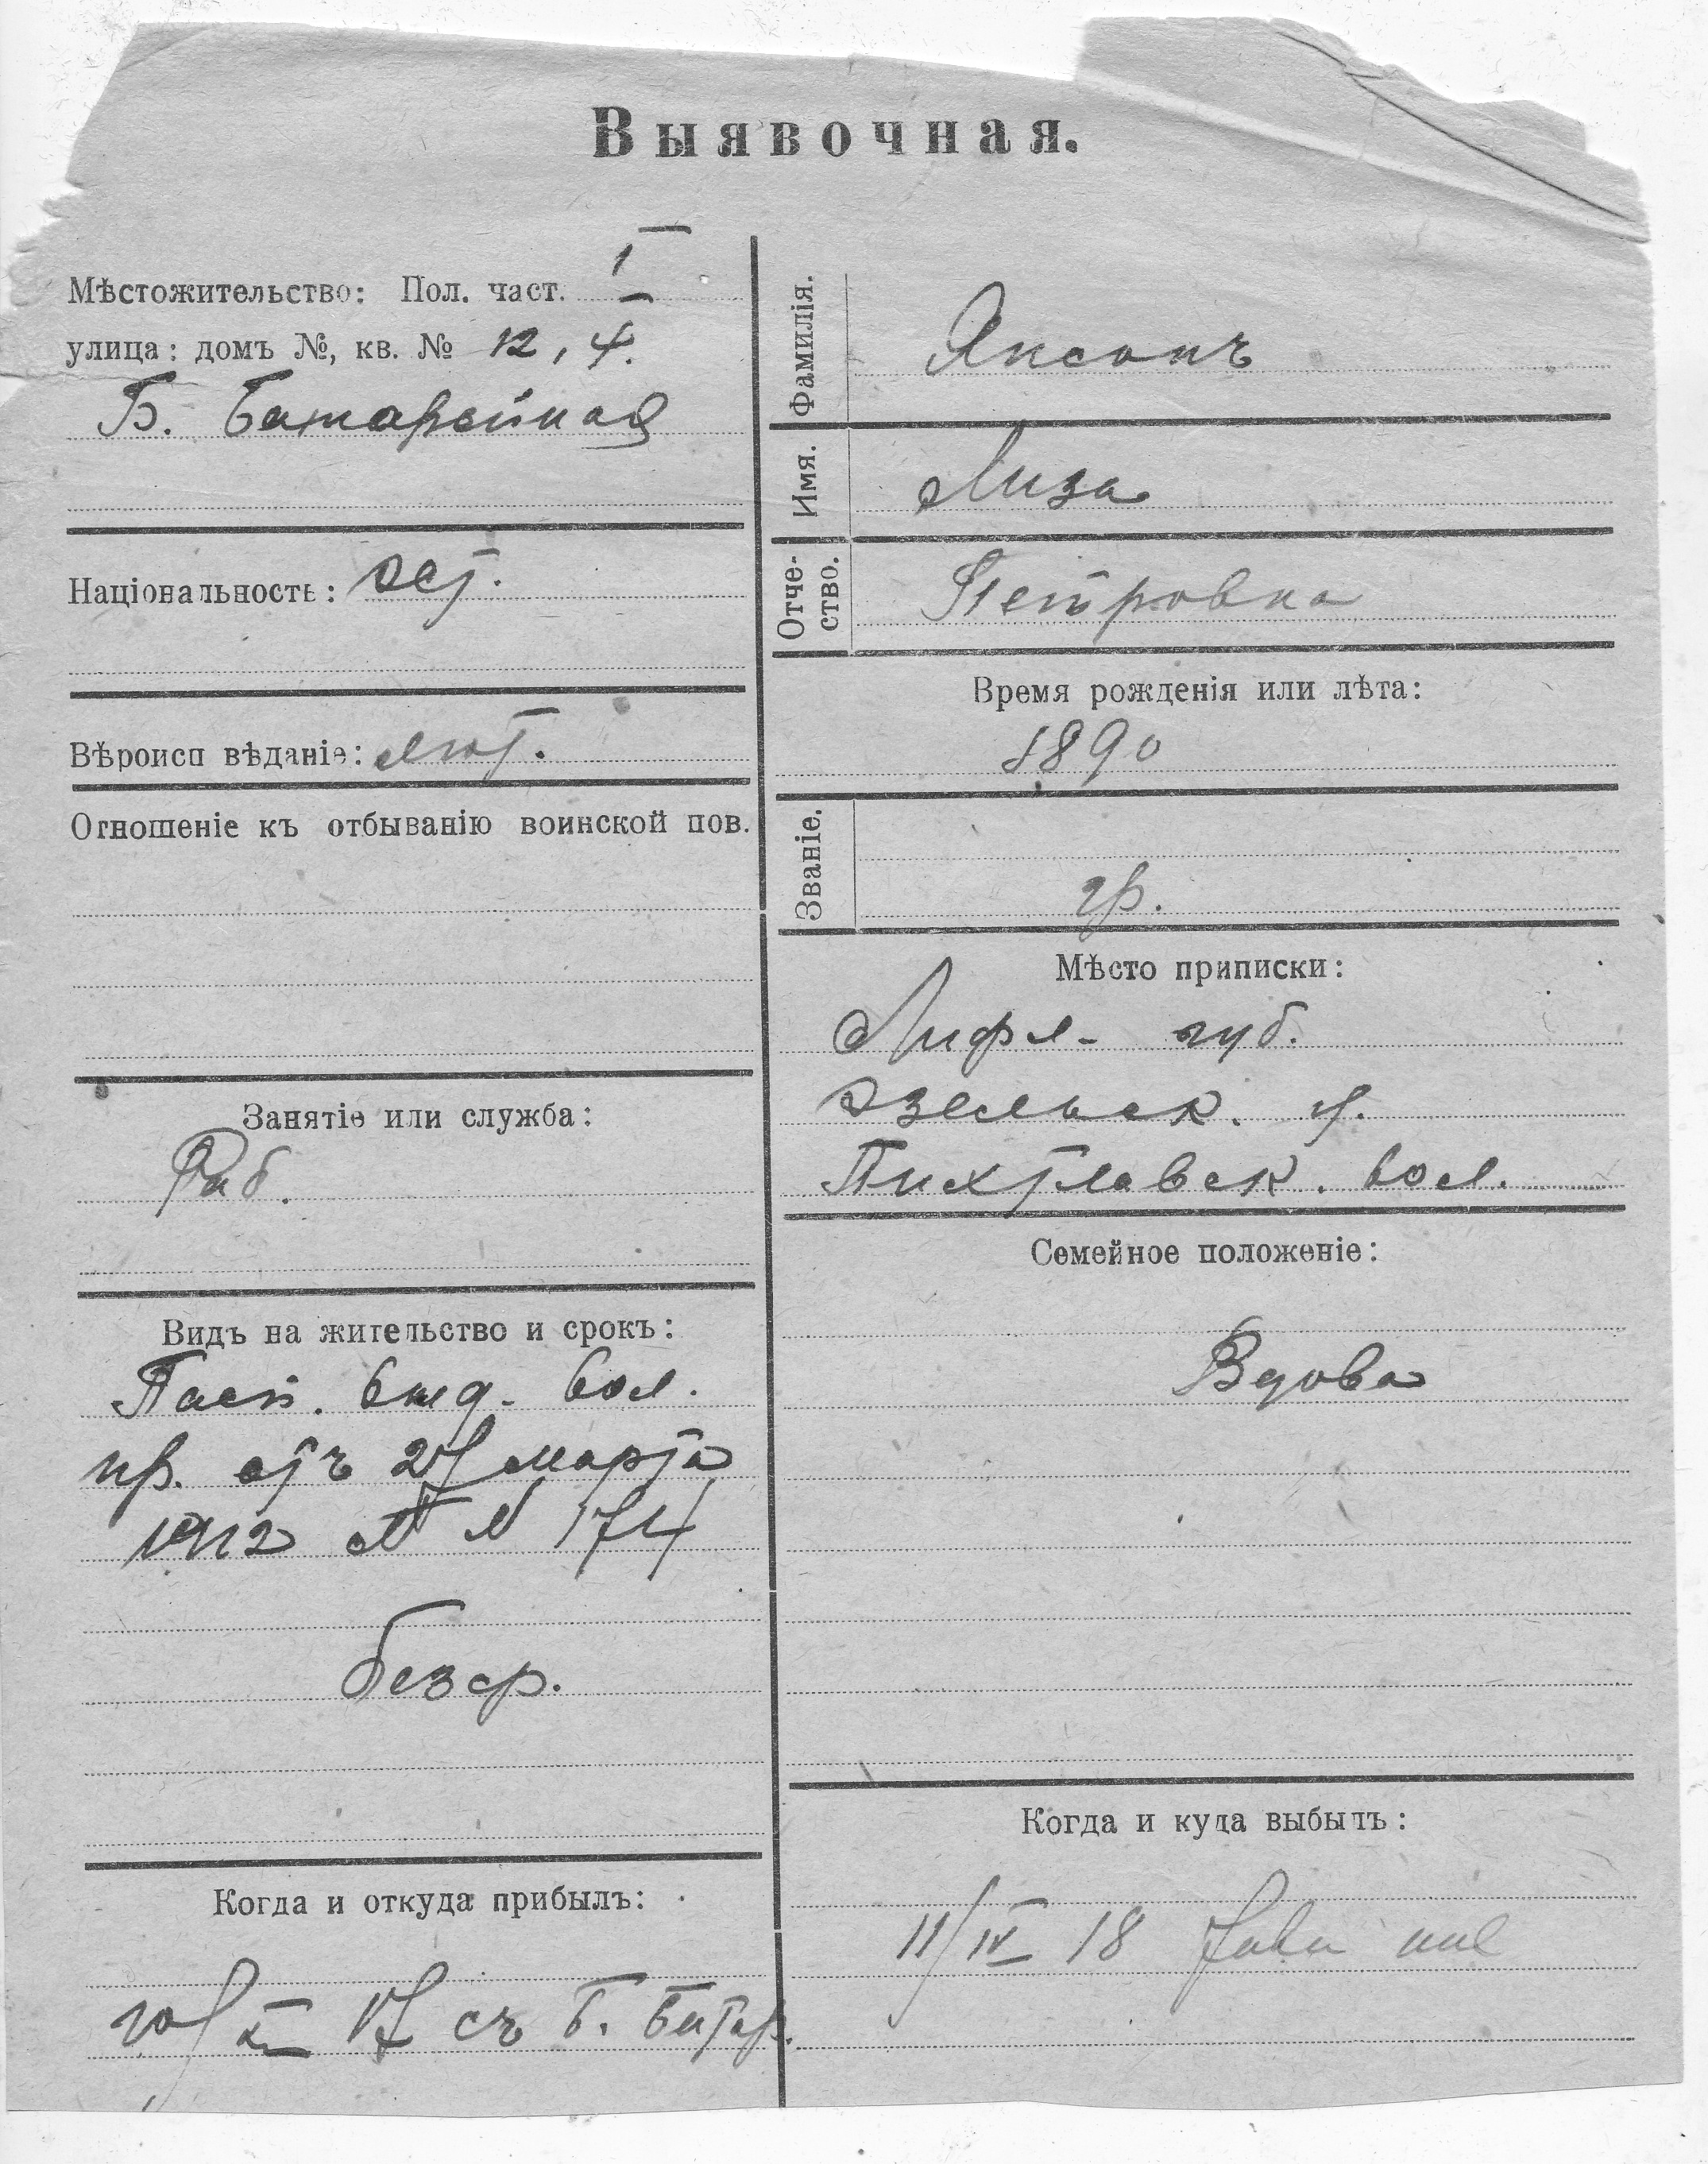 Выявочная.
Мѣстожительство: Пол. част. I
улица: домъ №, кв. № 12, 4.
Б. Батарейная
Національность: эст.
Вѣроисп вѣданіе: лют.
Отношеніе къ отбыванію воинской пов.
Занятіе или служба:
Раб.
Видъ на жительство и срокъ:
Пасп. выд. вол.
пр. отъ 27 марта
1912 № 174
безср.
Когда и откуда прибылъ:
17 съ Б. Батар.
Фамилія. Яксонъ
Имя. Лиза
Отче-
ство. Петровна
Время рожденія или лѣта:
1890
Званіе.
гр.
Мѣсто приписки:
Лифл- губ.
Эзельск. у.
Пихтлавск. вол.
Семейное положеніе:
Вдова
Когда и куда выбылъ:
11/IV 18